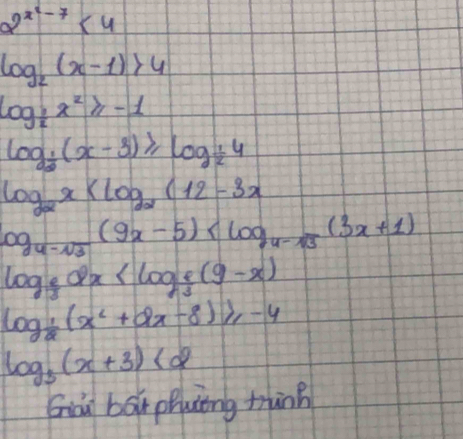 2^{x²-7} < 4
log_2 (x-1) > 4
log_{1/2} x² ≥ -1
log_{1/3} (x-3) ≥ log_{1/2} 4
log_2 x < log_2 (12-3x
log_{4-√3} (9x-5) < log_{4-√3} (3x+1)
2x < (9-x)
log_{1/2} (x²+2x-8) ≥ -4
log_3 (x+3) < 2
Giải bất phương trình